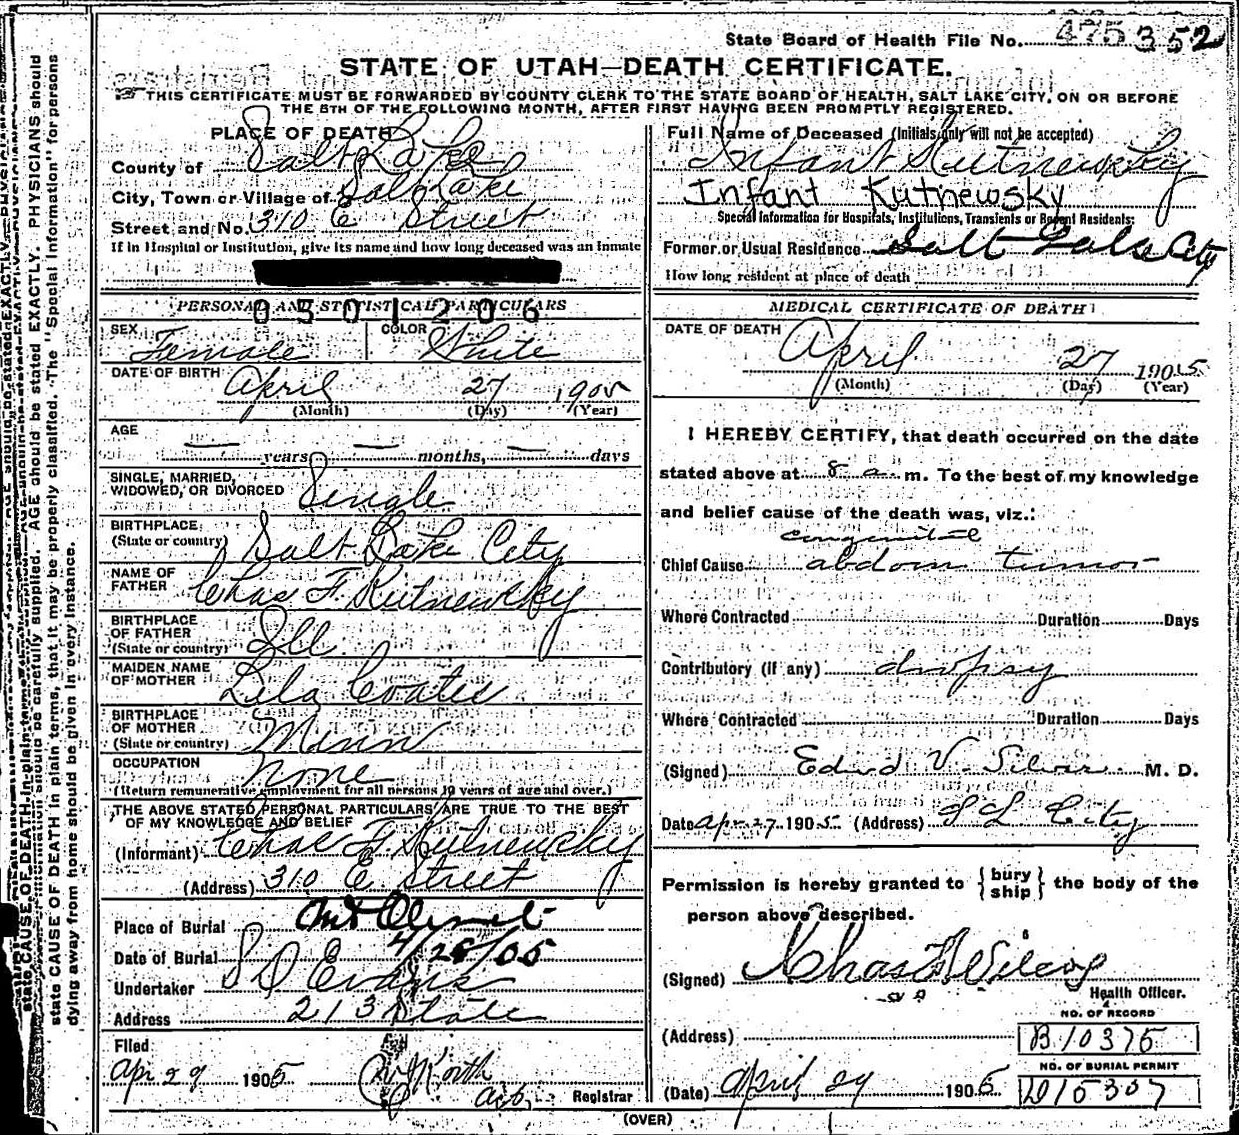 State Board of Health File No. 475 352
STATE OF UTAH—DEATH CERTIFICATE.
THIS CERTIFICATE MUST BE FORWARDED BY COUNTY CLERK TO THE STATE BOARD OF HEALTH, SALT LAKE CITY, ON OR BEFORE
THE 5TH OF THE FOLLOWING MONTH, AFTER FIRST HAVING BEEN PROMPTLY REGISTERED.
PLACE OF DEATH
County of Salt Lake
City, Town or Village of Salt Lake
Street and No. 310 E Street
If in Hospital or Institution, give its name and how long deceased was an inmate
Full Name of Deceased (Initials only will not be accepted)
Infant Kutnewsky
Infant Kutnewsky
Special Information for Hospitals, Institutions, Transients or Recent Residents:
Former or Usual Residence Salt Lake City
How long resident at place of death
PERSONAL AND STATISTICAL PARTICULARS
0501206
SEX Female COLOR White
DATE OF BIRTH April 27 1905
(Month) (Day) (Year)
AGE
— years — months, — days
SINGLE, MARRIED,
WIDOWED, OR DIVORCED Single
BIRTHPLACE
(State or country) Salt Lake City
NAME OF
FATHER Chas F. Kutnewsky
BIRTHPLACE
OF FATHER
(State or country) Ill
MAIDEN NAME
OF MOTHER Lila Coates
BIRTHPLACE
OF MOTHER
(State or country) Minn
OCCUPATION None
(Return remunerative employment for all persons 10 years of age and over.)
THE ABOVE STATED PERSONAL PARTICULARS ARE TRUE TO THE BEST
OF MY KNOWLEDGE AND BELIEF
(Informant) Chas F. Kutnewsky
(Address) 310 E Street
Place of Burial Mt Olivet
Date of Burial 4/28/05
Undertaker S D Evans
Address 213 State
Filed
Apr 29 1905
Registrar
MEDICAL CERTIFICATE OF DEATH
DATE OF DEATH April 27 1905
(Month) (Day) (Year)
I HEREBY CERTIFY, that death occurred on the date
stated above at 8 a m. To the best of my knowledge
and belief cause of the death was, viz.:
congenital
Chief Cause abdom tumor
Where Contracted Duration Days
Contributory (if any) dropsy
Where Contracted Duration Days
(Signed) Edwd V. Silver M. D.
Date Apr 27 1905 (Address) S L City
Permission is hereby granted to { bury ship } the body of the
person above described.
(Signed) Chas F Wilcox
Health Officer.
(Address)
NO. OF RECORD
B10375
NO. OF BURIAL PERMIT
D15307
(Date) April 29 1905
(OVER)
state CAUSE OF DEATH in plain terms, that it may be properly classified. The "Special Information" for persons
dying away from home should be given in every instance.